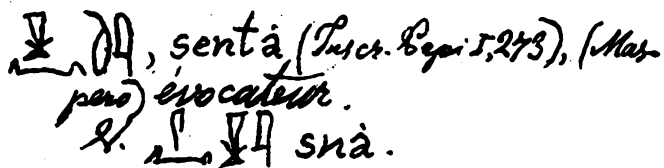 , sentà (Inscr. Égyi I, 273), (Mas-
pero) évocateur.
V. snà.